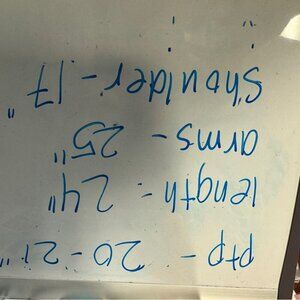 ptp - 20-21"
length - 24"
arms - 25"
Shoulder - 17"